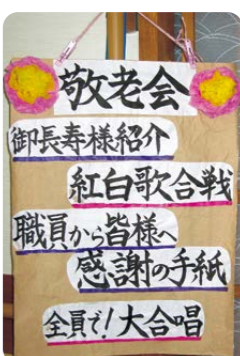 敬老会
御長寿様紹介
紅白歌合戦
職員から皆様へ
感謝の手紙
全員で!大合唱